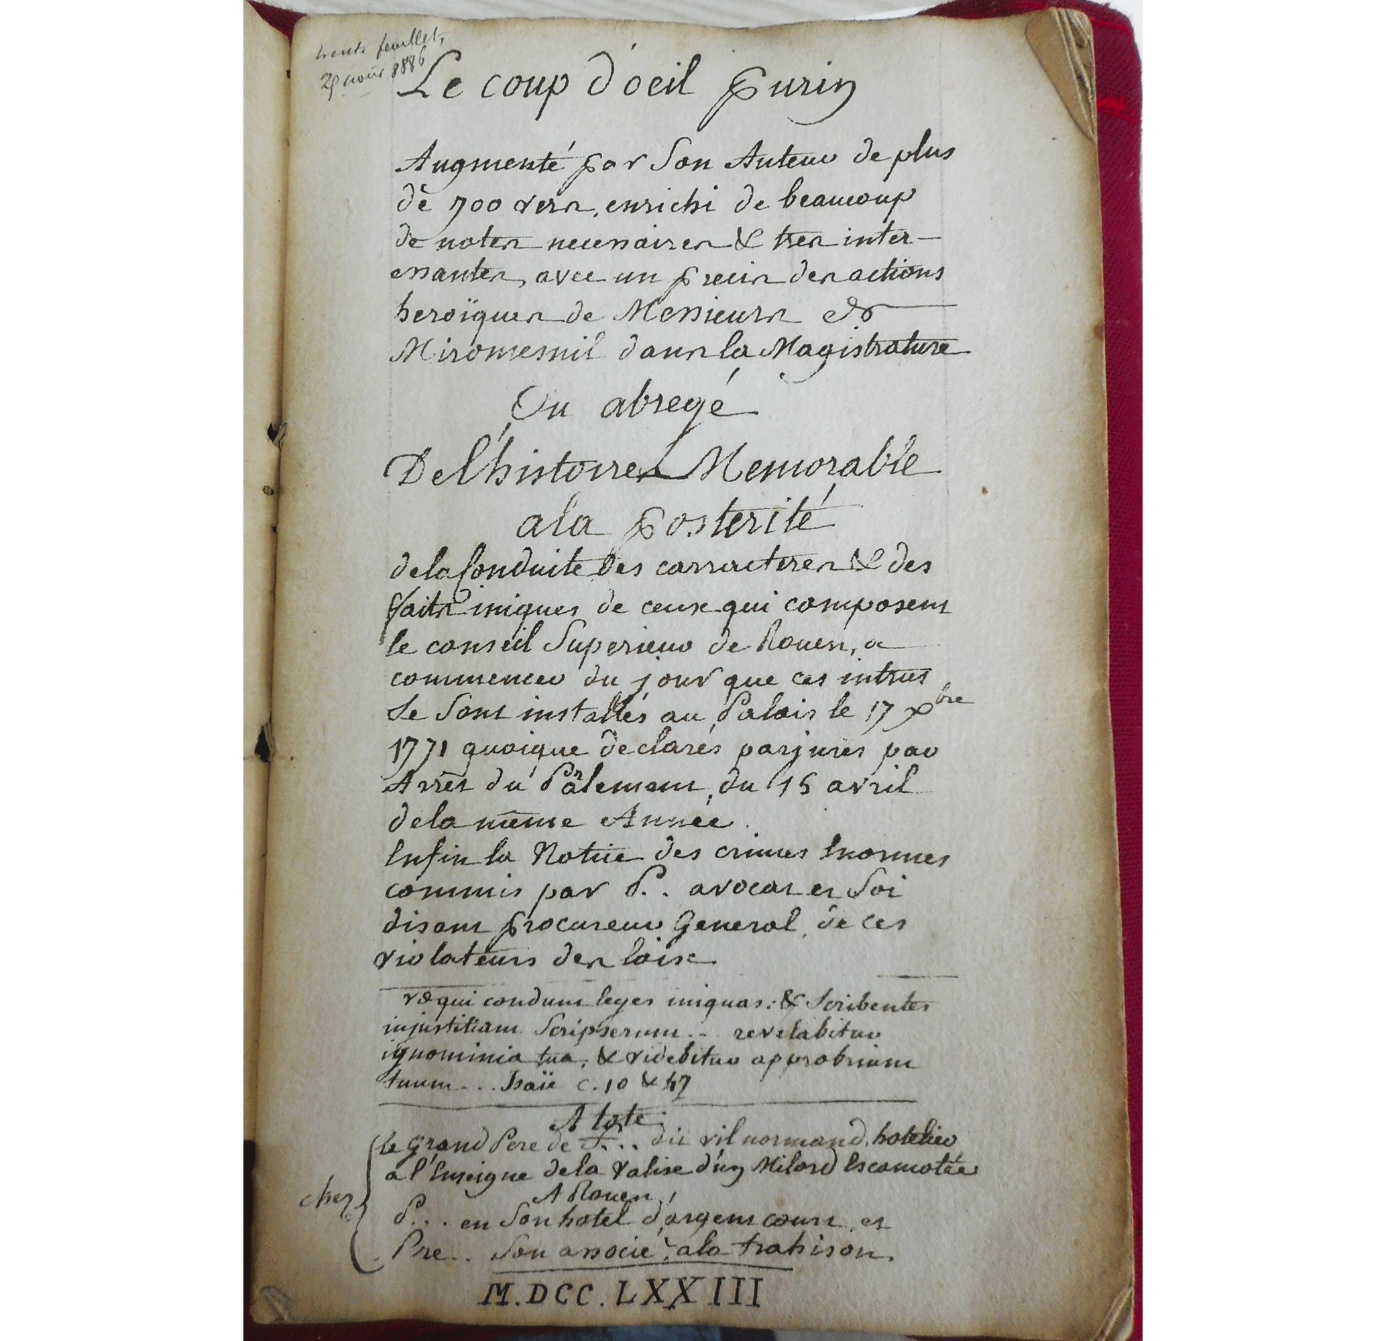 trente feuillets
29 août 1886
Le coup d'oeil purin
Augmenté par Son Auteur de plus
de 700 vers, enrichi de beaucoup
de notes necessaires & tres inter-
essantes, avec un precis des actions
heroïques de Messieurs de
Miromesnil dans la Magistrature
Ou abregé
De l'histoire Memorable
a la posterité
de la Conduite Des carracteres & des
faits iniques de ceux qui composent
le conseil Superieur de Rouen, a
commencer du jour que ces intrus
Se Sont installés au Palais le 17 Xbre
1771 quoique declarés parjures par
Arrêt du Parlement, du 15 avril
de la même Année.
Enfin la Notice des crimes Enormes
commis par P.. avocat et Soi
disant procureur General de ces
violateurs des loix
væ qui condunt leges iniquas: & Scribentes
injustitiam Scripserunt.. revelabitur
ignominia tua, & videbitur opprobrium
tuum... Isaïe c. 10 & 47
A tote
le Grand Pere de F... dit vil normand, hotelier
a l'Enseigne de la Valise d'un Milord Escamotée
A Rouen
chez
P... en Son hotel d'argent court, et
Pre.. Son associé à la trahison.
M.DCC.LXXIII